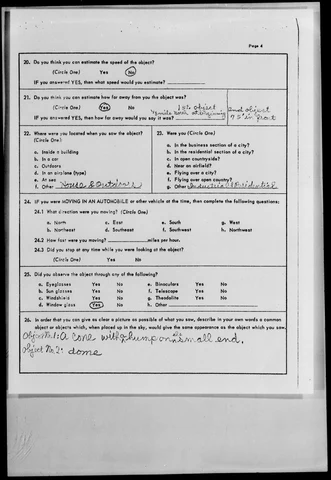 Page 4
20. Do you think you can estimate the speed of the object?
(Circle One) Yes No
IF you answered YES, then what speed would you estimate?
21. Do you think you can estimate how far away from you the object was?
(Circle One) Yes No
1st object 2nd object
IF you answered YES, then how far away would you say it was? at beginning 75' in front
22. Where were you located when you saw the object?
(Circle One)
a. Inside a building
b. In a car
c. Outdoors
d. In an airplane (type)
e. At sea
f. Other House & Outside
23. Were you (Circle One)
a. In the business section of a city?
b. In the residential section of a city?
c. In open countryside?
d. Near an airfield?
e. Flying over a city?
f. Flying over open country?
g. Other Industrial & Residential
24. IF you were MOVING IN AN AUTOMOBILE or other vehicle at the time, then complete the following questions:
24.1 What direction were you moving? (Circle One)
a. North c. East e. South g. West
b. Northeast d. Southeast f. Southwest h. Northwest
24.2 How fast were you moving? miles per hour.
24.3 Did you stop at any time while you were looking at the object?
(Circle One) Yes No
25. Did you observe the object through any of the following?
a. Eyeglasses Yes No e. Binoculars Yes No
b. Sun glasses Yes No f. Telescope Yes No
c. Windshield Yes No g. Theodolite Yes No
d. Window glass Yes No h. Other
26. In order that you can give as clear a picture as possible of what you saw, describe in your own words a common
object or objects which, when placed up in the sky, would give the same appearance as the object which you saw.
Object No. 1: A cone with a hump on the small end.
Object No. 2: dome